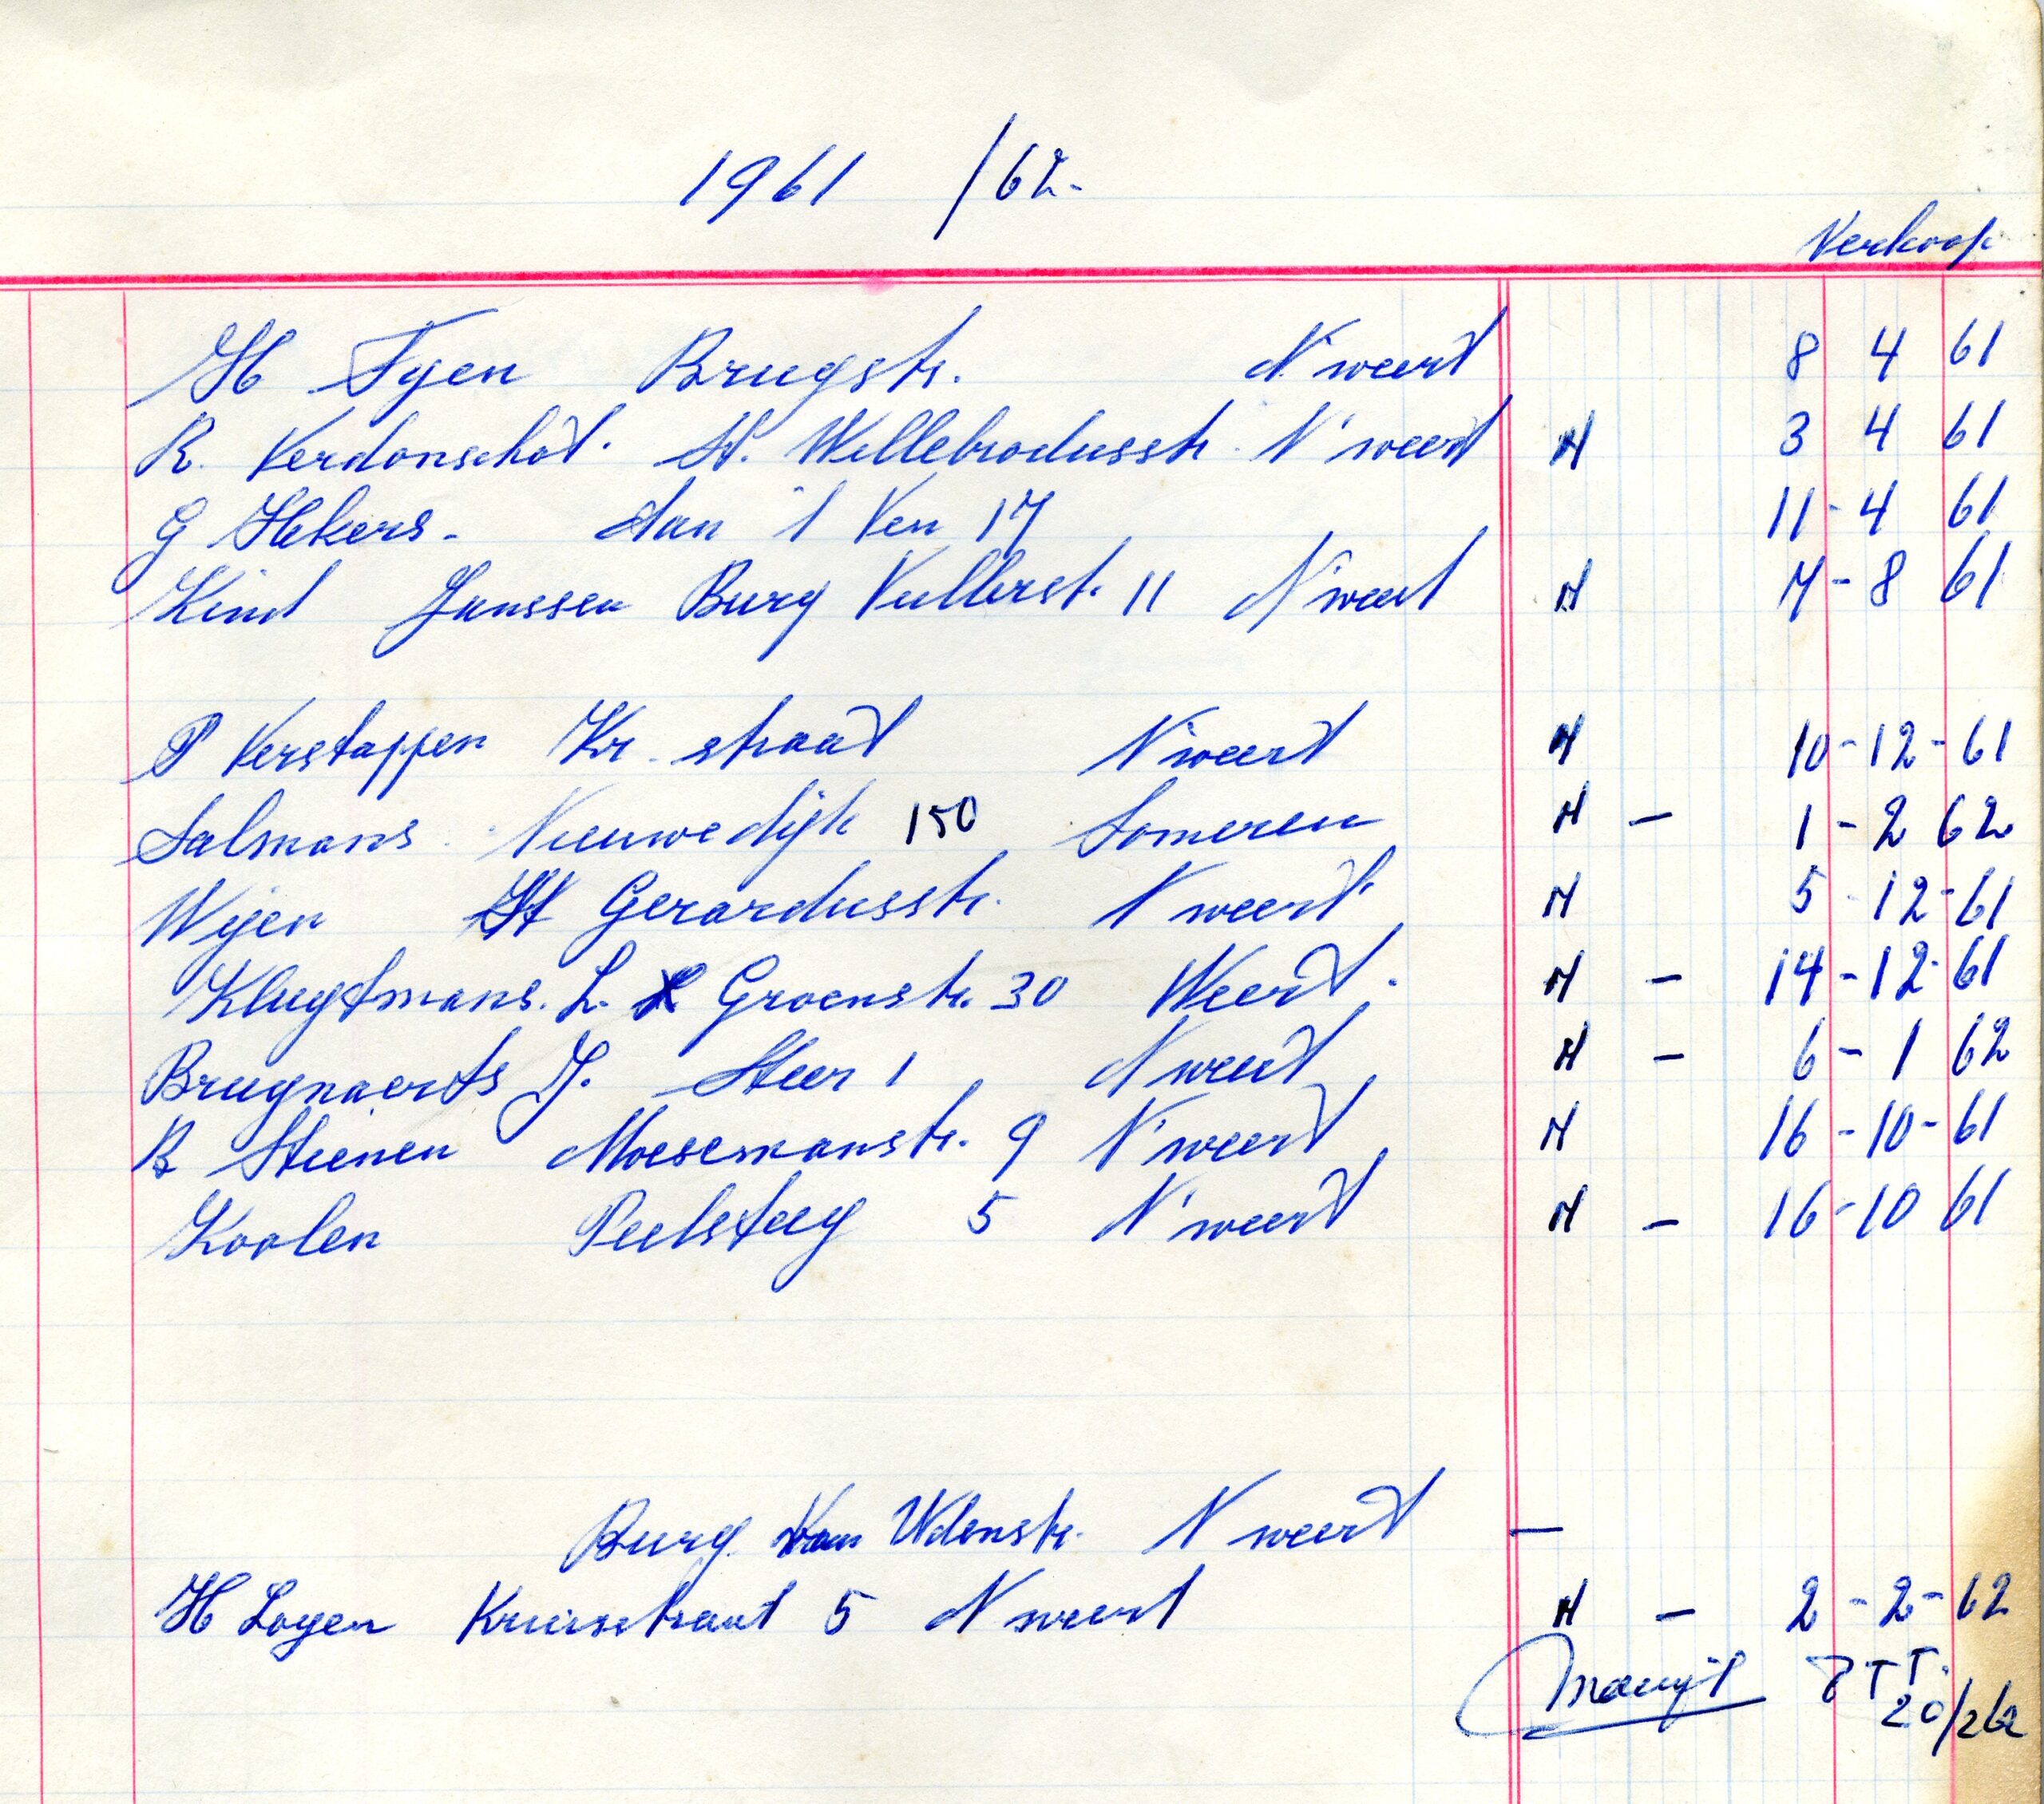 1961 /62-
Verkoop
H Fyen Brugstr. N'weert 8 4 61
R. Verdonschot. St. Willebrodusstr. N'weert N 3 4 61
G Hekers - Aan 't Ven 17 11-4 61
Kind Janssen Burg Vullerst. 11 N'weert N 7-8 61
P Verstappen Kr. straat N'weert N 10-12-61
Salmans Nieuwedijk 150 Someren N - 1-2 62
Wijen St Gerardusstr. N weert N 5-12-61
Klugtmans. L. Groenstr. 30 Weert. N - 14-12-61
Brugnaerts J. Steer 1 N weert N - 6-1 62
B Stienen Moesemanstr. 9 N'weert N 16-10-61
Koolen Peelsteeg 5 N'weert N - 16-10 61
Burg. Van Udenstr. N weert -
H Loyen Kruisstraat 5 N weert N - 2-2-62
PTT.
20/2 62